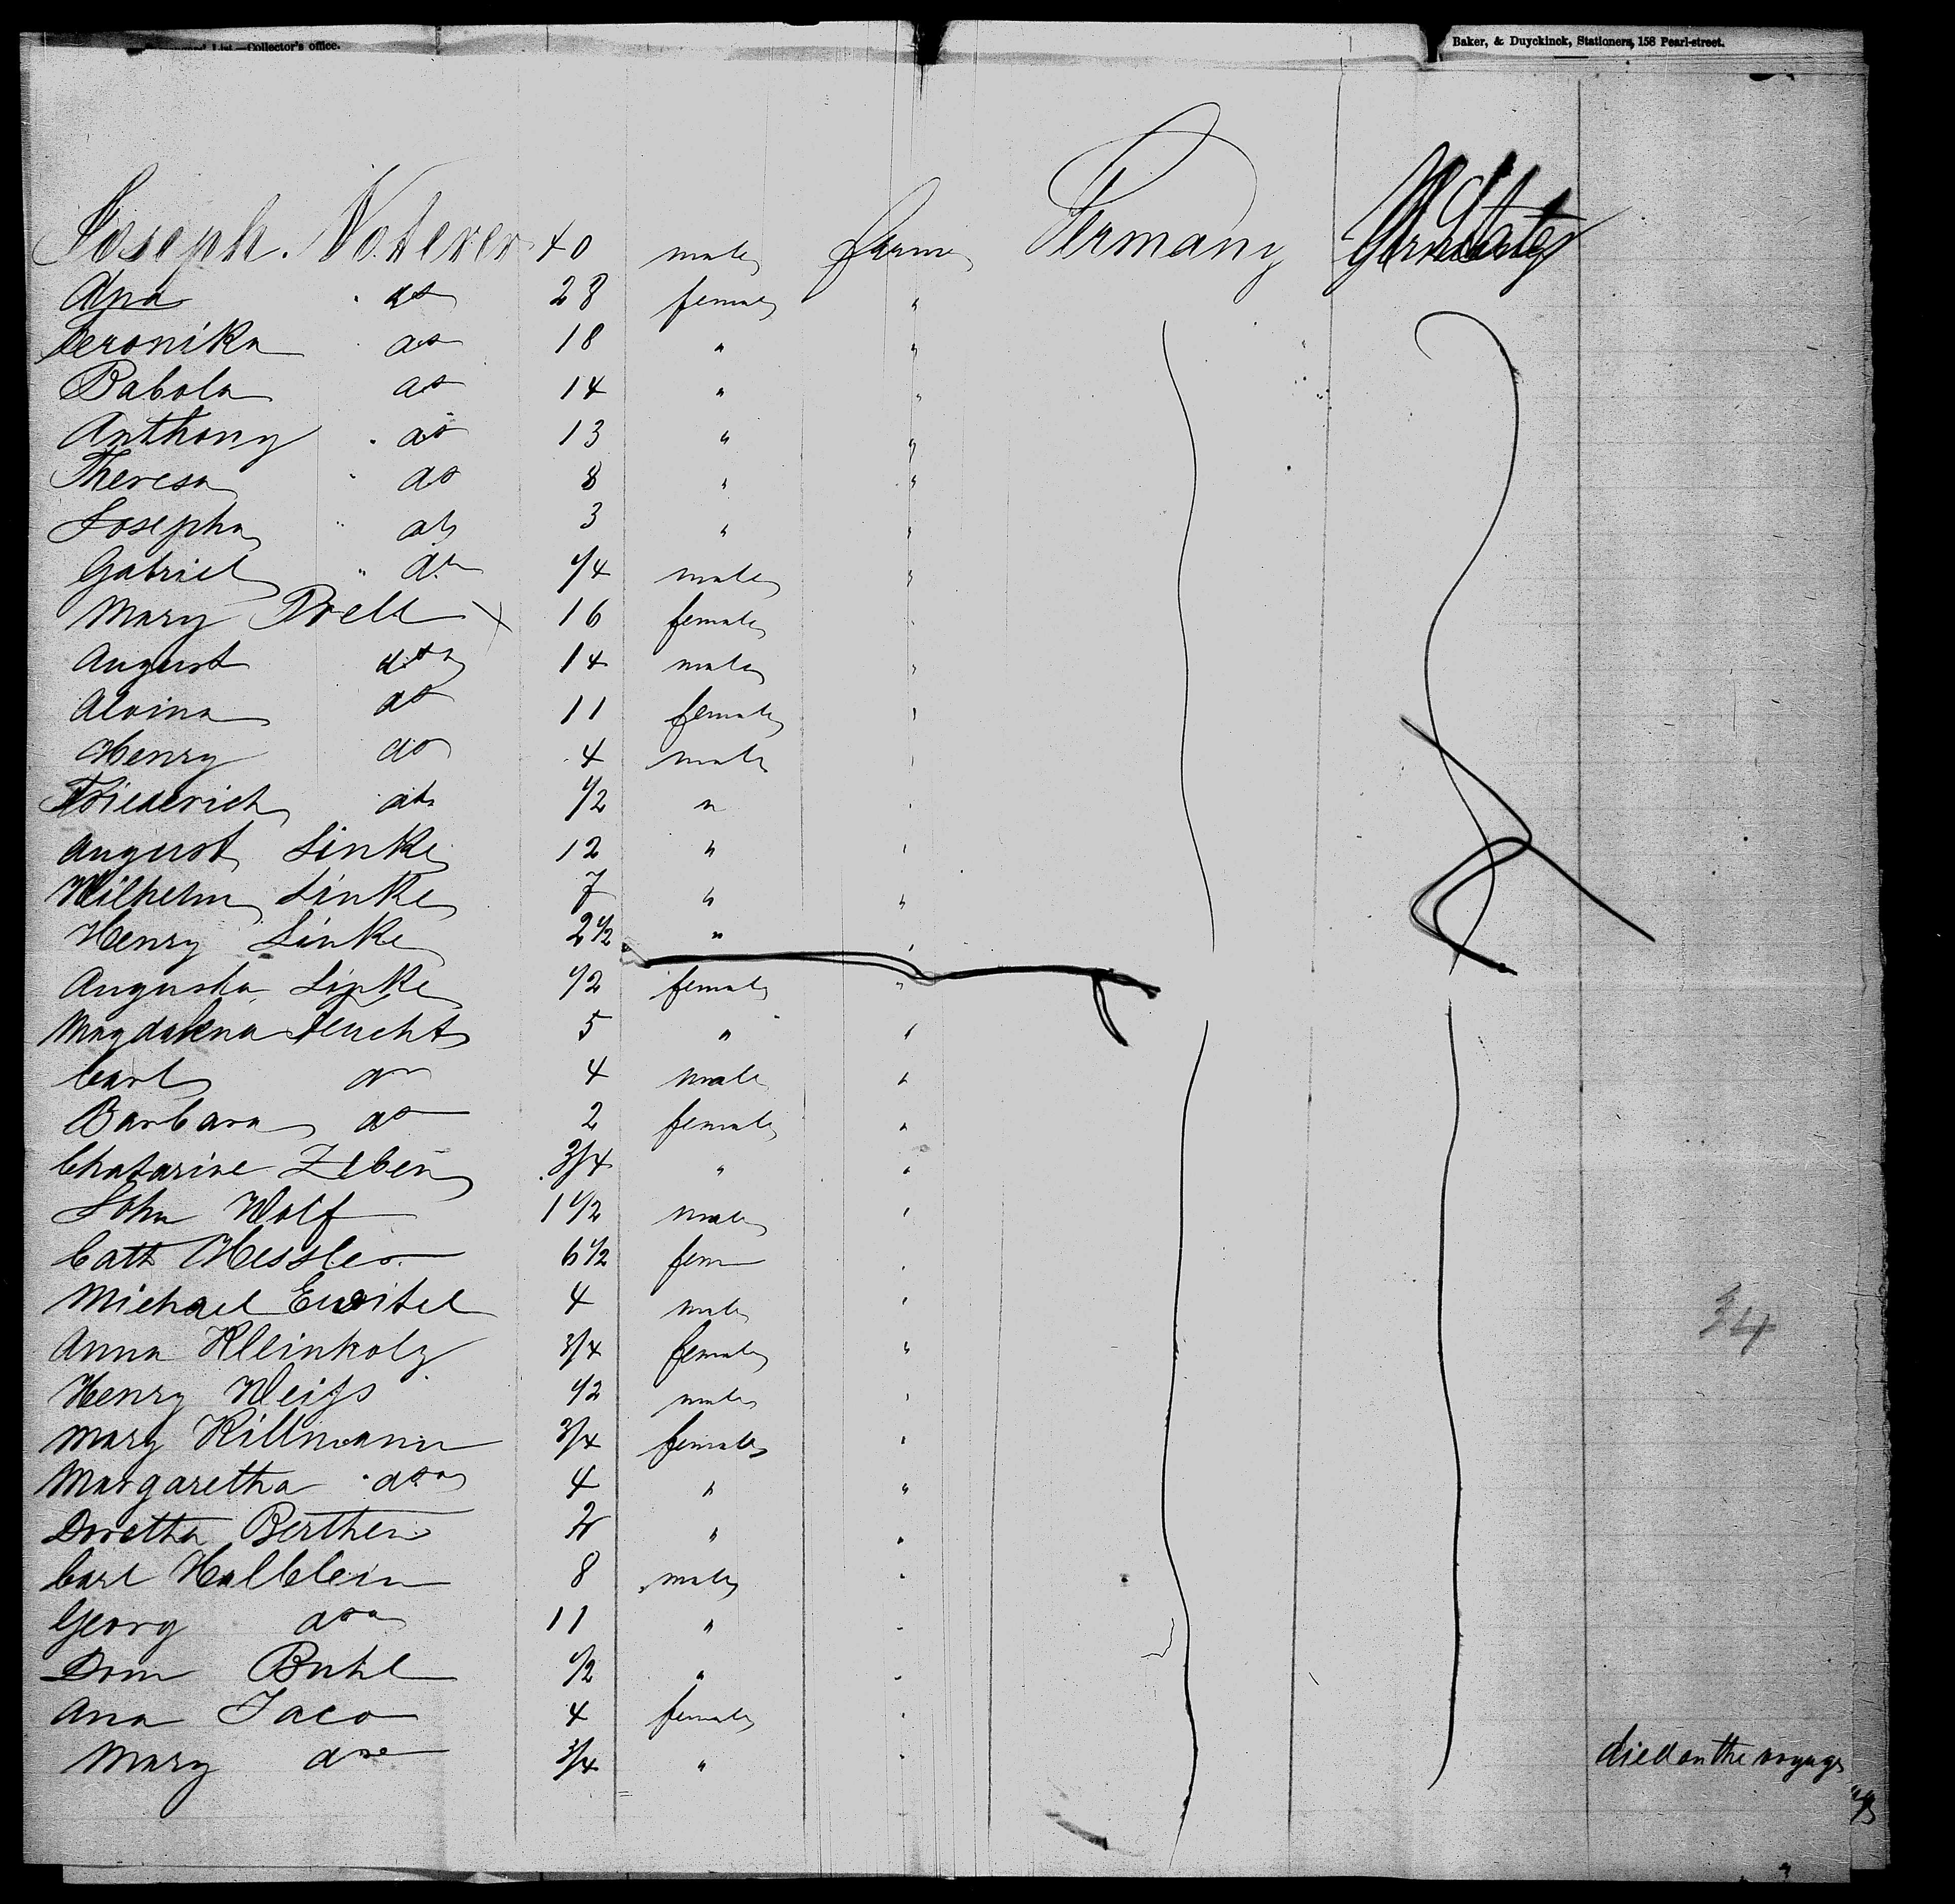 List.—Collector's office.
Baker, & Duyckinck, Stationers, 158 Pearl-street.
Joseph. Noterer 40 male farmer Germany
Ana do 28 female "
Veronika do 18 " "
Babola do 14 " "
Anthony do 13 " "
Theresa do 8 " "
Josepha do 3 " "
Gabriel do 1/4 male "
Mary Prell 16 female
August do 14 male "
Alvina do 11 female "
Henry do 4 male "
Friederich do 1/2 " "
August Linke 12 " "
Wilhelm Linke 7 " "
Henry Linke 2 1/2 " "
Augusta Linke 1/2 female "
Magdalena Feucht 5 " "
Carl do 4 male "
Barbara do 2 female "
Chatarine Zeben 3/4 " "
John Wolf 1 1/2 male "
Cath Hessler 6 1/2 fem "
Michael 4 male "
Anna Kleinholz 3/4 female "
Henry Weifs 1/2 male "
Mary Killmann 3/4 female "
Margaretha do 4 " "
Doretha " "
Carl Hallblein 8 male "
Georg do 11 " "
Dom Buhl 1/2 " "
Ana Jaco 4 female "
Mary do 3/4 " " died on the voyage
34